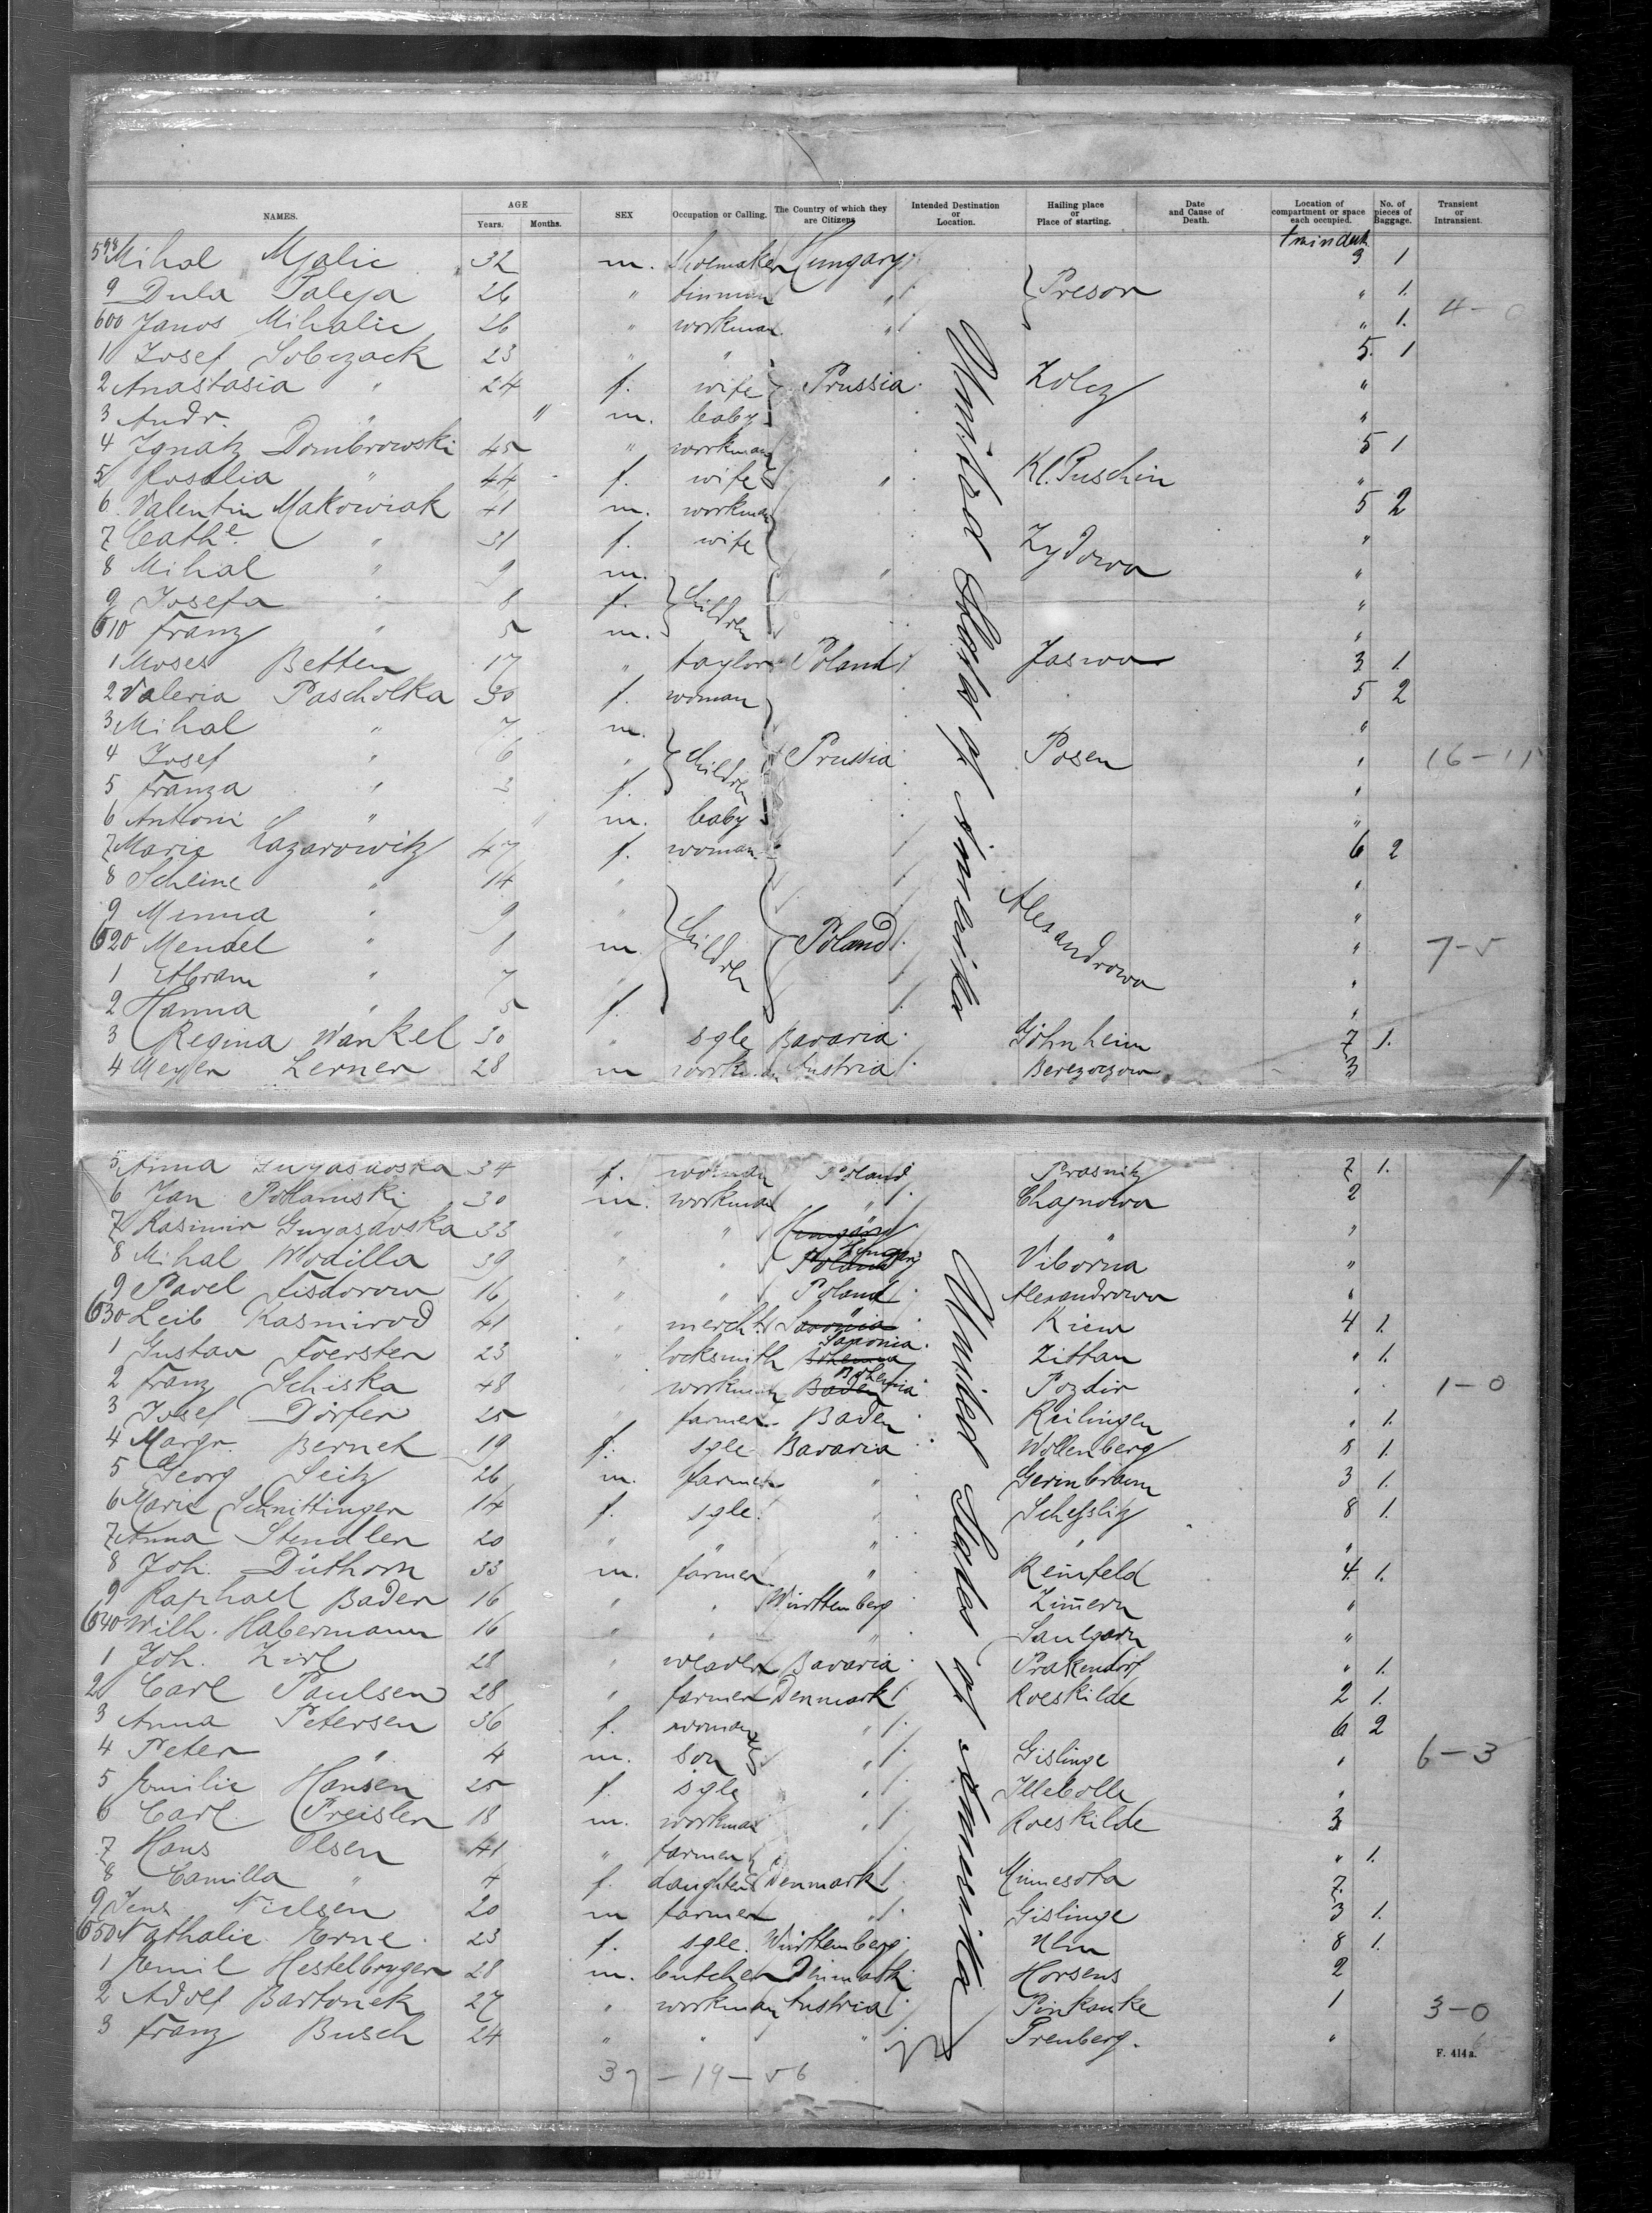 NAMES. AGE Years. Months. SEX Occupation or Calling. The Country of which they are Citizens Intended Destination or Location. Hailing place or Place of starting. Date and Cause of Death. Location of compartment or space each occupied. No. of pieces of Baggage. Transient or Intransient.
598 Mihal Mjalic 32 m. shoemaker Hungary 3 1
9 Dula Paleja 26 " tinman " Presov " 1.
600 Janos Mihalic 26 " workman " " 1. 4-0
1 Josef Sobczack 23 " " 5. 1
2 Anastasia " 24 f. wife Prussia Zolcz "
3 Andr. " " m. baby "
4 Ignatz Dombrowski 45 " workman 5 1
5 Rosalia " 44 f. wife " Kl. Puschin "
6 Valentin Makowiak 41 m. workman 5 2
7 Cathe " 31 f. wife Zydowo "
8 Mihal " 9 m. " "
9 Josefa " 8 f. Children "
610 Franz " 5 m. "
1 Moses Betten 17 " taylor Poland Jaswo 3 1.
2 Valeria Pascholka 30 f. woman 5 2
3 Mihal " 7 m. "
4 Josef " 6 " Children Prussia Posen " 16-11
5 Franza " 3 f. "
6 Antoni " " m. baby "
7 Marie Lazarowitz 47 f. woman 6 2
8 Scheine " 14 " "
9 Minna " 9 " Alexandrowo "
620 Mendel " 8 m Children Poland " 7-5
1 Abram " 7 " "
2 Hanna " 5 f. "
3 Regina Wankel 30 " sgle Bavaria Göhnheim 7 1.
4 Meyer Lerner 28 m workman Austria Berezoczow 3
United States of America
5 Anna 34 f. woman Poland Prasnitz 7 1.
6 Jan Potlamski 30 m. workman " Chajnowo 2
7 Kasimir Guyasdovska 33 " " Hungary " "
8 Mihal Wodilla 39 " " Poland Hungary Viborna "
9 Pavel Fisdorow 16 " " Poland Alexandrowo "
630 Leib Kasmirod 41 " mercht. Saxonia Kiew 4 1.
1 Gustav Foerster 23 " locksmith Bohemia Saxonia Zittau " 1.
2 Franz Schiska 48 " workman Baden Bohemia Pozdir " 1-0
3 Josef Dörfer 25 " farmer Baden Reilingen " 1.
4 Margr. Bernet 19 f. sgle Bavaria Wollenberg 8 1.
5 Georg Seitz 26 m. farmer " Gerinbraun 3 1.
6 Marie Schnittinger 14 f. sgle. " Schesslitz 8 1.
7 Anna Stendler 20 " " " " "
8 Joh. Düthorn 33 m. farmer " Reinfeld 4 1.
9 Raphael Bader 16 " " Württemberg Zimern "
640 Wilh. Habermann 16 " " " Saulgarn "
1 Joh. Zirl 28 " weaver Bavaria Prakendorf " 1.
2 Carl Paulsen 28 " farmer Denmark Roeskilde 2 1.
3 Anna Petersen 36 f. woman " 6 2
4 Peter " 4 m. son " Gislinge " 6-3
5 Emilie Hansen 25 f. sgle " Illebolle "
6 Carl Preisler 18 m. workman " Roeskilde 3
7 Hans Olsen 41 " farmer " 1.
8 Camilla " 4 f. daughter Denmark Minnesota 7.
9 Jens Nielsen 20 m farmer " Gislinge 3 1.
650 Nathalie Erne 23 f. sgle. Württemberg Ulm 8 1.
1 Emil Hestelbryger 28 m. butcher Denmark Horsens 2
2 Adolf Bartonek 27 " workman Austria Pinkauke 1 3-0
3 Franz Busch 24 " " " Prenberg. "
United States of America
37-19-56
F. 414 a.